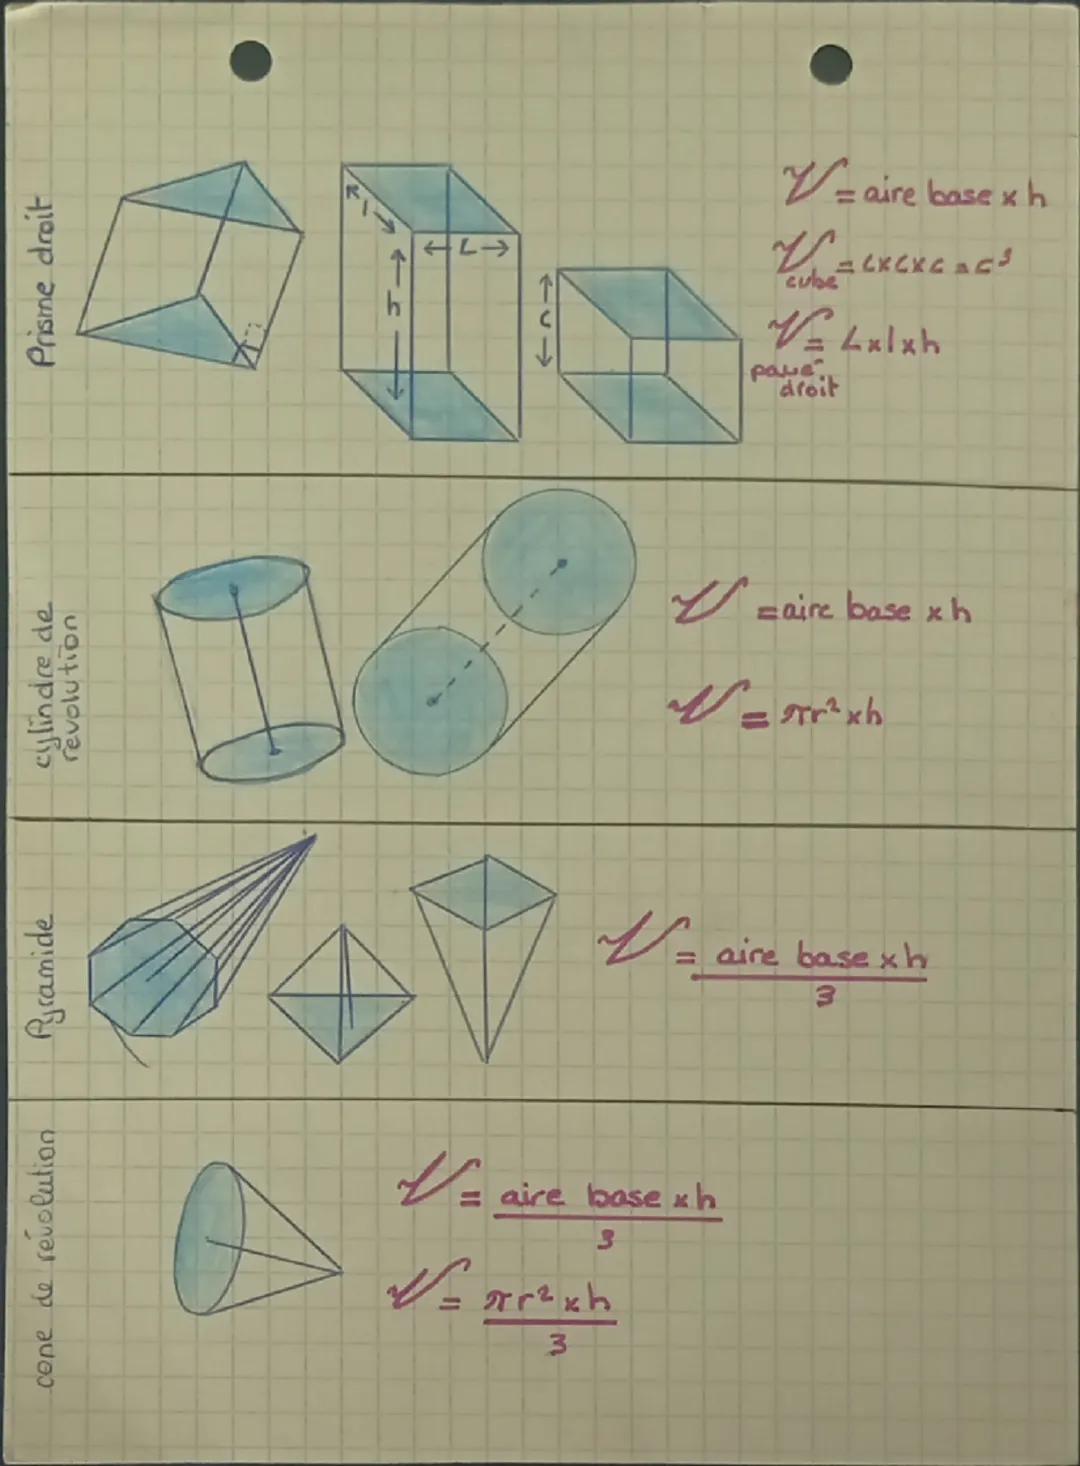 Prisme droit
l
L
h
c
V = aire base x h
V cube = c x c x c = c³
V pavé droit = L x l x h
cylindre de
révolution
V = aire base x h
V = πr² x h
Pyramide
V = aire base x h
3
cone de révolution
V = aire base x h
3
V = πr² x h
3